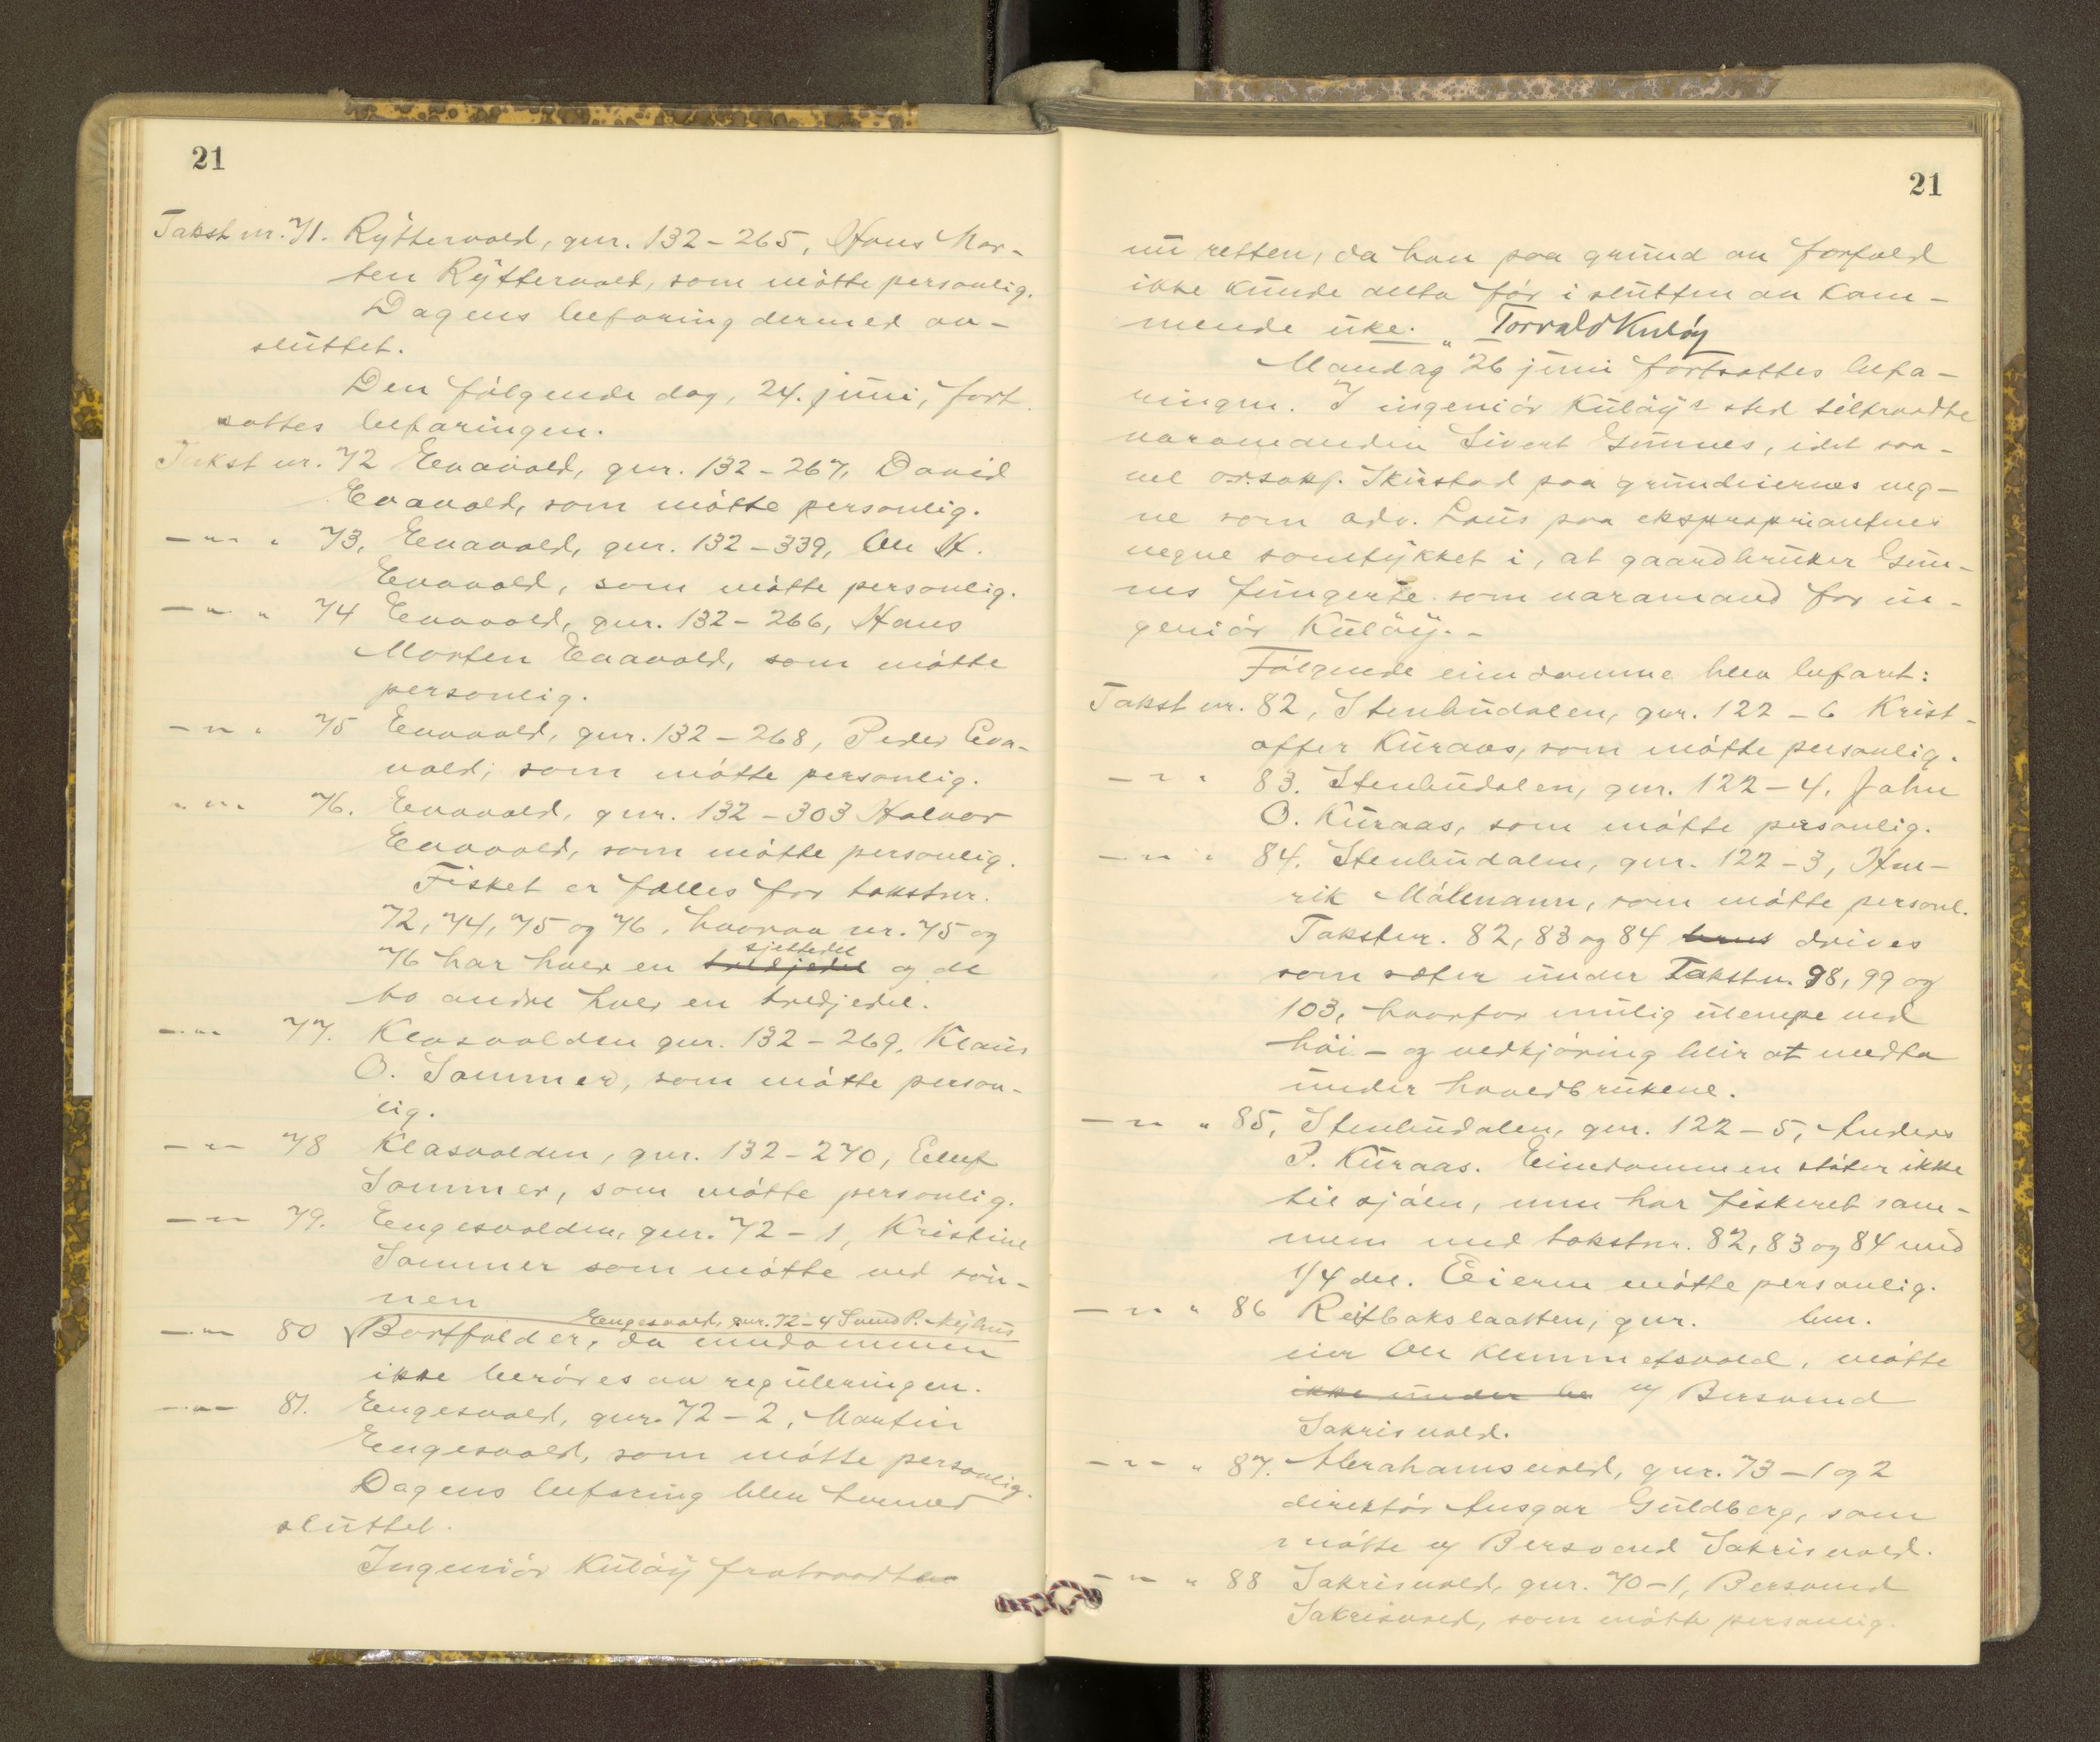 21
Takst nr. 71. Ryttervold, gnr. 132-265, Hans Mor-
ten Ryttervold, som møtte personlig.
Dagens befaring dermed av-
sluttet.
Den følgende dag, 24. juni, fort
sattes befaringen.
Takst nr. 72 Evavold, gnr. 132-267, David
Evavold, som møtte personlig.
-"- " 73, Evavold, gnr. 132-339, Ole H.
Evavold, som møtte personlig.
-"- " 74 Evavold, gnr. 132-266, Hans
Morten Evavold, som møtte
personlig.
-"- " 75 Evavold, gnr. 132-268, Peder Eva-
vold, som møtte personlig.
-"- 76. Evavold, gnr. 132-303 Halvor
Evavold, som møtte personlig.
Fisket er fælles for takstnr.
72, 74, 75 og 76, hvorav nr. 75 og
sjettedel
76 har hver en tredjedel og de
to andre hver en tredjedel.
-"- 77. Klasvolden gnr. 132-269, Klaus
O. Sommer, som møtte person-
lig.
-"- 78 Klasvolden, gnr. 132-270, Eluf
Sommer, som møtte personlig.
-"- 79. Engesvolden, gnr. 72-1, Kristine
Sommer som møtte ved søn-
nen
Engesvold, gnr. 72-4 Svend P. Nyhus
-"- 80 Bortfalder, da eiendommen
ikke berøres av reguleringen.
-"- 81. Engesvold, gnr. 72-2, Martin
Engesvold, som møtte personlig.
Dagens befaring blev hermed
sluttet.
Ingeniør Kuløy fratraadte
21
nu retten, da han paa grund av forfald
ikke kunde delta før i slutten av kom-
mende uke. " Torvald Kuløy
Mandag 26 juni fortsattes befa-
ringen. I ingeniør Kuløy's sted tiltraadte
varamanden Sivert Grunnes, idet saa-
vel o.r.sakf. Skirstad paa grundeiernes veg-
ne som adv. Lous paa ekspropriantens
vegne samtykket i, at gaardbruker Grun-
nes fungerte som varamand for in-
geniør Kuløy.-
Følgende eiendomme blev befart:
Takst nr. 82, Stenbudalen, gnr. 122-6 Krist-
offer Kuraas, som møtte personlig.
-"- " 83. Stenbudalen, gnr. 122-4, John
O. Kuraas, som møtte personlig.
-"- " 84. Stenbudalen, gnr. 122-3, Hen-
rik Mølmann, som møtte personl.
Takstnr. 82, 83 og 84 brus drives
som sæter under Takstnr. 98, 99 og
103, hvorfor mulig ulempe ved
høi- og vedkjøring blir at medta
under hovedbrukene.
-"- " 85, Stenbudalen, gnr. 122-5, Anders
P. Kuraas. Eiendommen støter ikke
til sjøen, men har fiskeret sam-
men med takstnr. 82, 83 og 84 med
1/4 del. Eieren møtte personlig.
-"- " 86 Reitbakslaatten, gnr. bnr.
eier Ole Klemmetsvold, møtte
ikke under be ej Bersvend
Sakrisvold.
-"- " 87. Abrahamsvold, gnr. 73-1 og 2
direktør Ansgar Guldberg, som
møtte ej Bersvend Sakrisvold.
-"- " 88 Sakrisvold, gnr. 70-1, Bersvend
Sakrisvold, som møtte personlig.